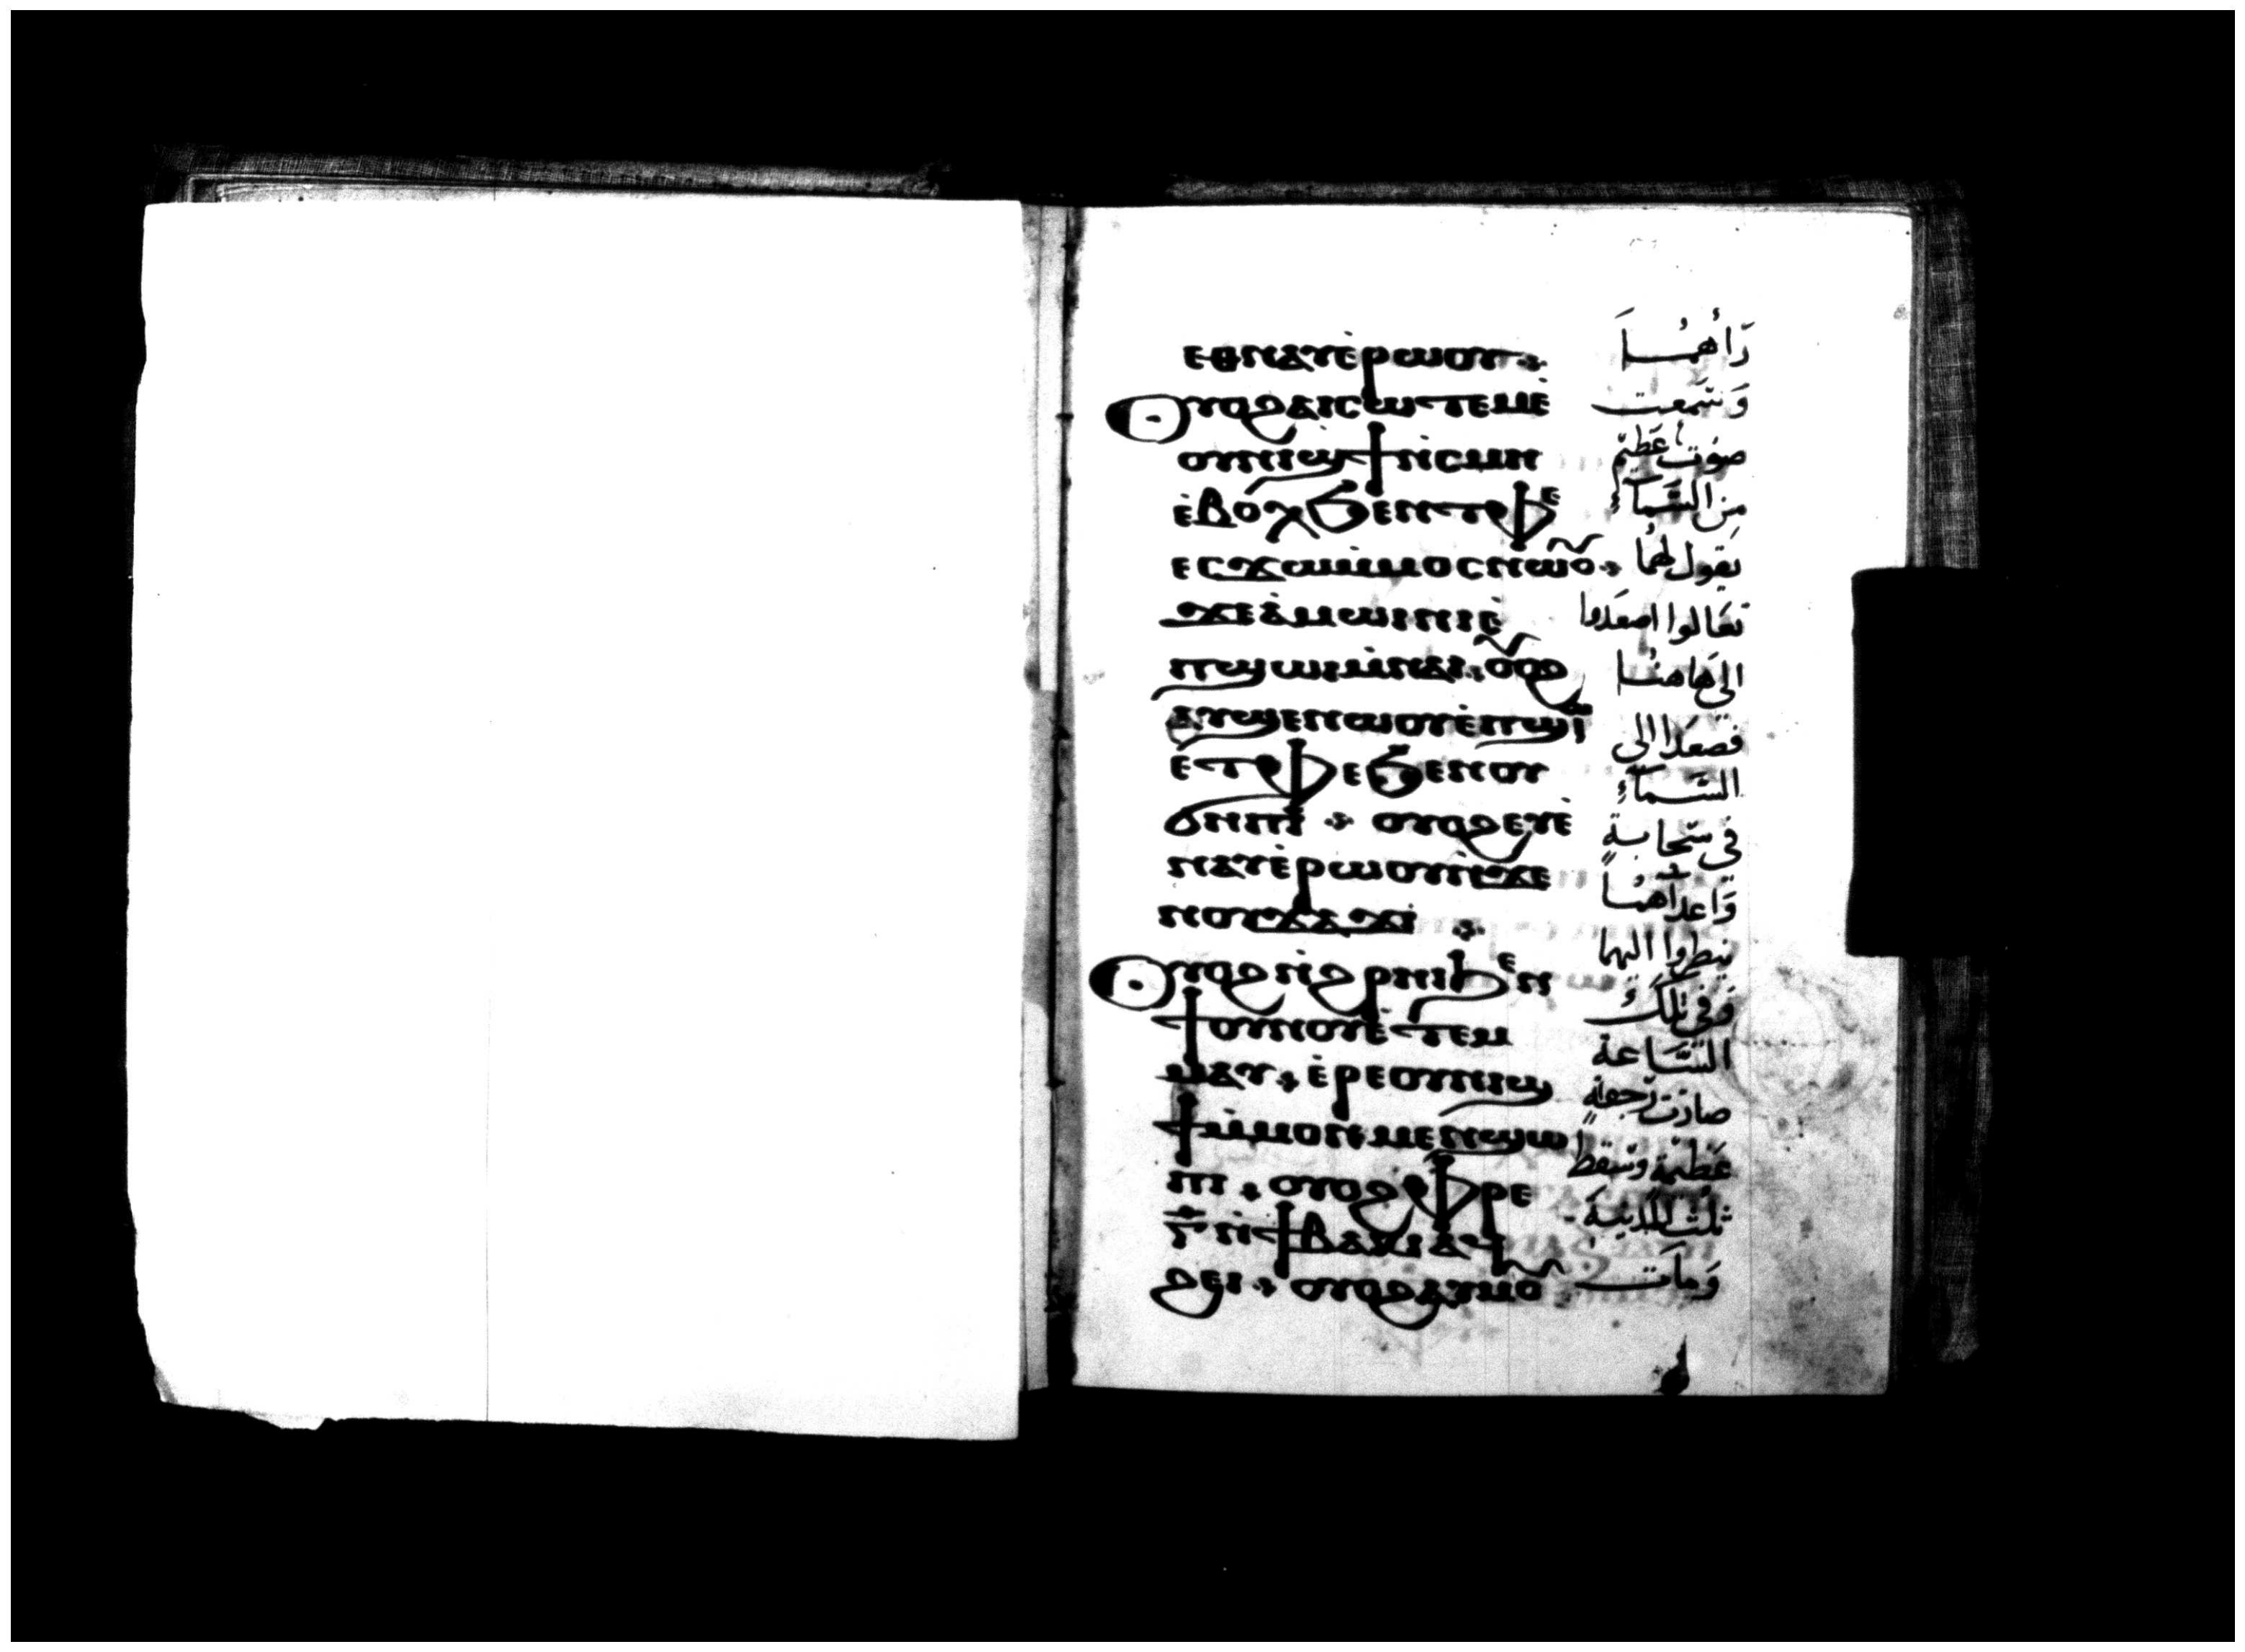 ⲉⲑⲛⲁⲩⲉ̇ⲣⲱⲟⲩ ⁘
Ⲟⲩⲟϩⲁⲓⲥⲱⲧⲉⲙⲉ̇
ⲟⲩⲛⲓϣϯⲛ̇ⲥⲙⲏ
ⲉ̇ⲃⲟⲗϧⲉⲛⲧⲫⲉ
ⲉⲥϫⲱⲙ̇ⲙⲟⲥⲛⲱⲟ̃ ⁘
ϫⲉⲁ̇ⲙⲱⲓⲛⲓⲉ̇
ⲡϣⲱⲓⲙ̇ⲛⲁⲓ ⁘ ⲟ̃ⲟϩ
ⲁⲩϣⲉⲛⲱⲟⲩⲉ̇ⲡϣⲱⲓ
ⲉⲧⲫⲉϧⲉⲛⲟⲩ
ϭⲏⲡⲓ ⁘ ⲟⲩⲟϩⲉⲩⲉ̇
ⲛⲁⲩⲉ̇ⲣⲱⲟⲩⲛ̇ϫⲉ
ⲛⲟⲩϫⲁϫⲓ ⁘
Ⲟⲩⲟϩⲛ̇ϩⲣⲏⲓϧⲉⲛ
ϯⲟⲩⲛⲟⲩⲉ̇ⲧⲉⲙ
ⲙⲁⲩ ⁘ ⲉ̇ⲣⲉⲟⲩⲛⲓϣ
ϯⲙ̇ⲙⲟⲛⲙⲉⲛϣⲱ
ⲡⲓ ⁘ ⲟⲩⲟϩⲫⲣⲉ
ⲅ̅ⲛ̇ϯⲃⲁⲕⲓⲁϥ
ϩⲉⲓ ⁘ ⲟⲩⲟϩⲁⲩⲙⲟ̃
رَأهُمَا
وَسَمعت
صوت عَظيم
مِن السَّمآءِ
يَقول لهُما
تعَالوا اصعَدوا
الى هَاهنُا
فصعَدا الى
السَّمآءِ
في سحَابةٍ
وَاعدآهمُا
ينظروا اليهما
وَفي تلكَ
السَّاعة
صارَت رَجفةٍ
عَظيمة وسَقط
ثلث المدينة
وَمات